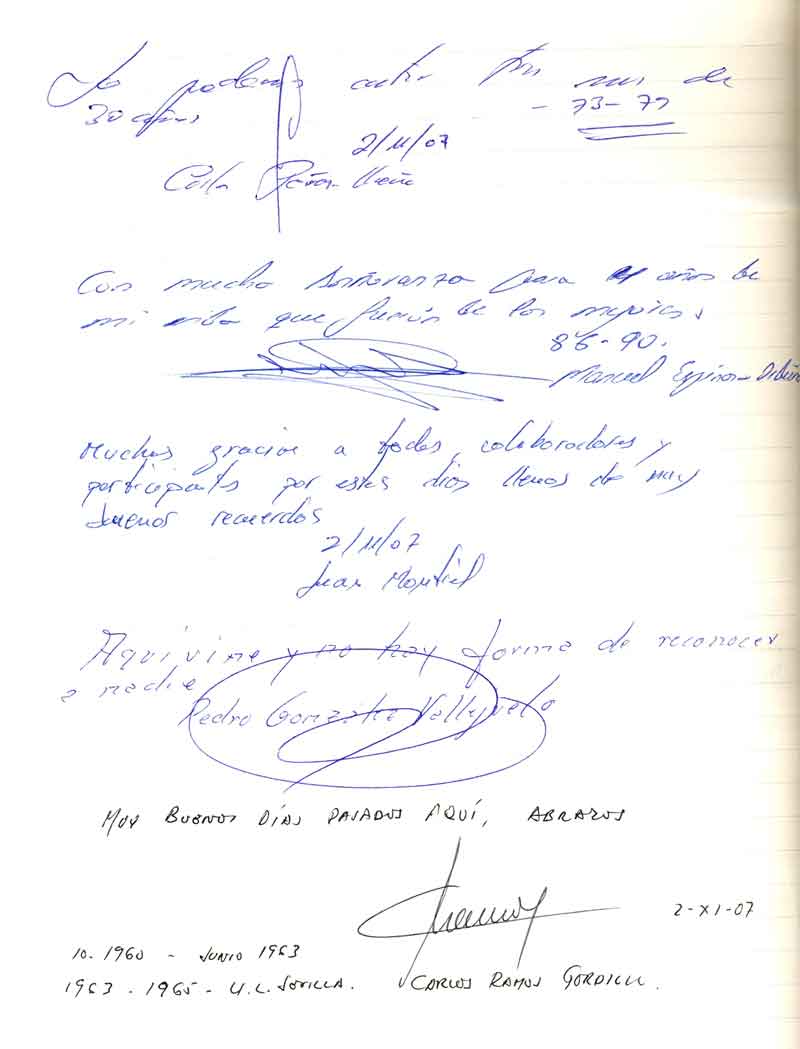 Ya podemos entrar tras mas de
30 años - 73-77
2/11/07
Con mucha añoranza para años de
mi vida que fueron de los mejores.
86-90.
Manuel Espinosa
Muchas gracias a todos, colaboradores y
participantes por estos días llenos de muy
buenos recuerdos
2/11/07
Juan Montiel
Aquí vine y no hay forma de reconocer
a nadie
Pedro González Vallejuelo
MUY BUENOS DÍAS PASADOS AQUÍ, ABRAZOS
2-XI-07
10.1960 - JUNIO 1963
1963 - 1965 - U.L. SEVILLA. CARLOS RAMOS GORDILLO.